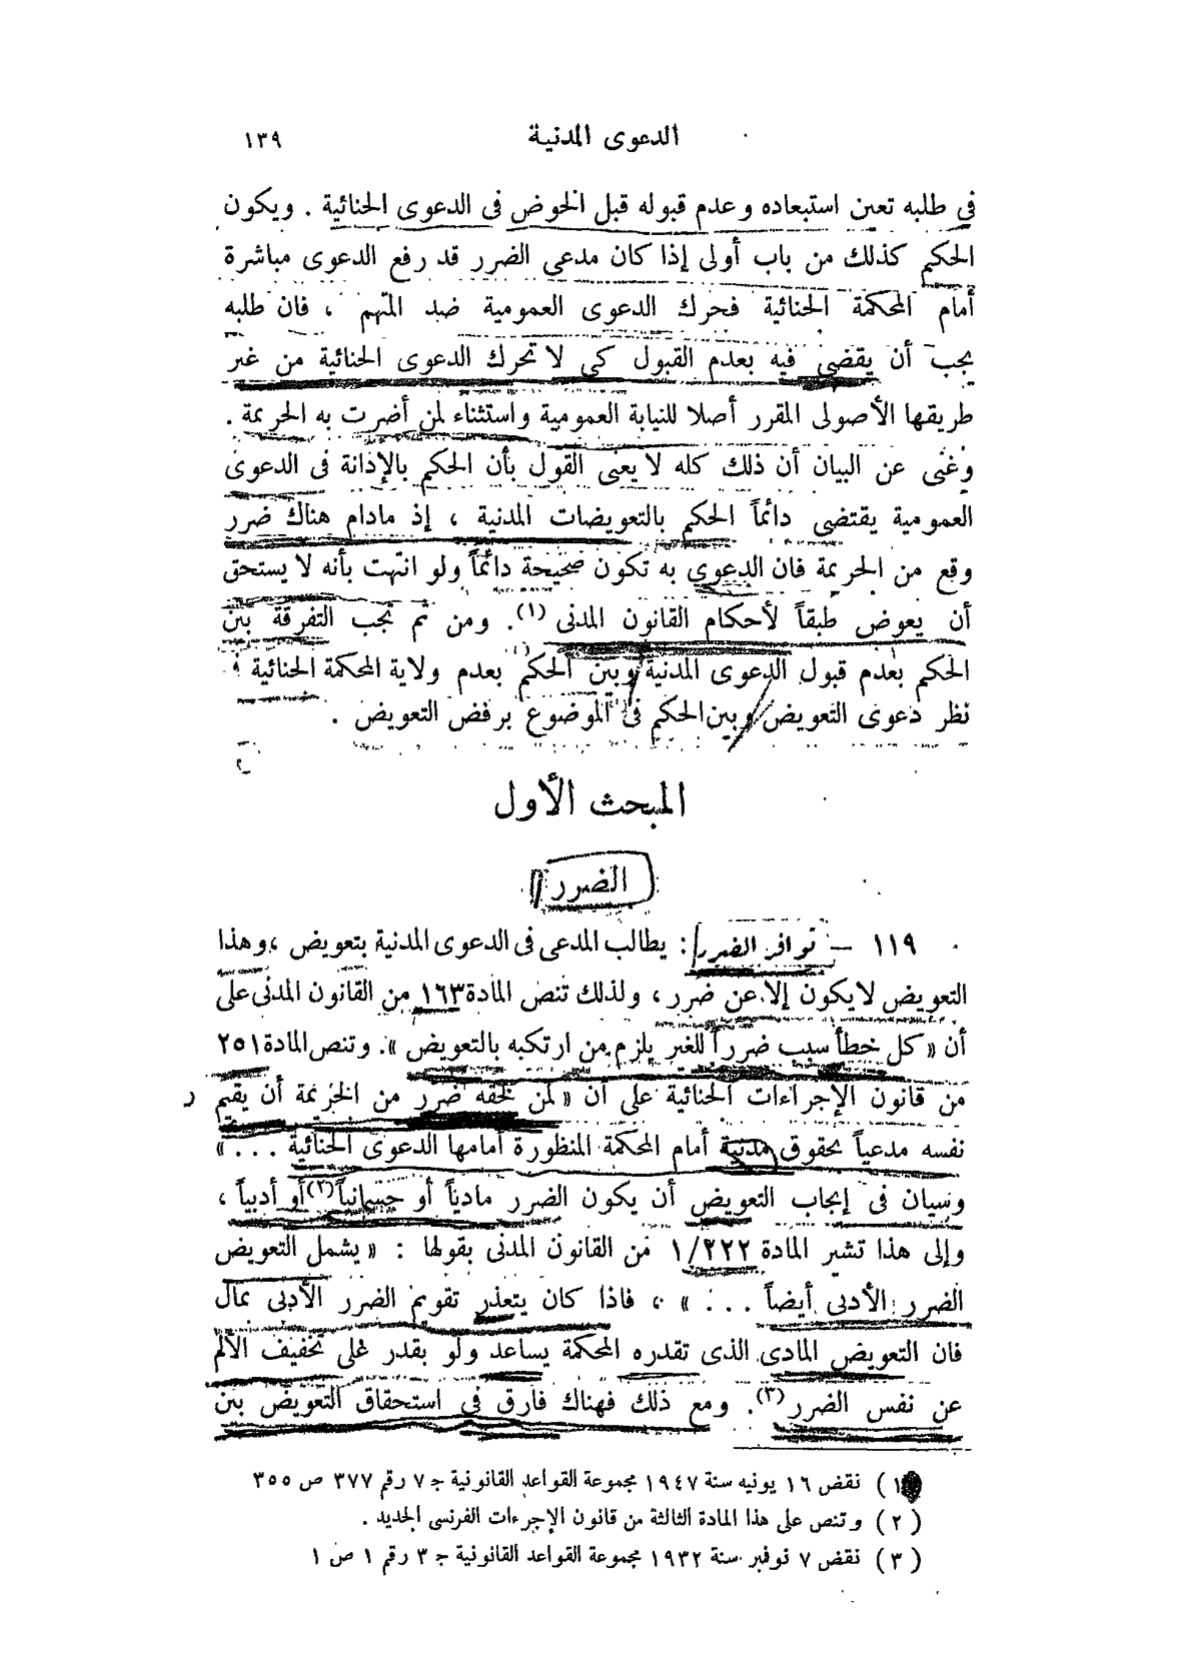 الدعوى المدنية ١٣٩
فى طلبه تعين استبعاده وعدم قبوله قبل الخوض فى الدعوى الجنائية . ويكون
الحكم كذلك من باب أولى إذا كان مدعى الضرر قد رفع الدعوى مباشرة
أمام المحكمة الجنائية فحرك الدعوى العمومية ضد المتهم ، فان طلبه
يجب أن يقضى فيه بعدم القبول كى لا تحرك الدعوى الجنائية من غير
طريقها الأصولى المقرر أصلا للنيابة العمومية واستثناء لمن أضرت به الجريمة .
وغنى عن البيان أن ذلك كله لا يعنى القول بأن الحكم بالإدانة فى الدعوى
العمومية يقتضى دائماً الحكم بالتعويضات المدنية ، إذ مادام هناك ضرر
وقع من الجريمة فان الدعوى به تكون صحيحة دائماً ولو انتهت بأنه لا يستحق
أن يعوض طبقاً لأحكام القانون المدنى (١). ومن ثم تجب التفرقة بين
الحكم بعدم قبول الدعوى المدنية وبين الحكم بعدم ولاية المحكمة الجنائية فى
نظر دعوى التعويض وبين الحكم فى الموضوع برفض التعويض .
المبحث الأول
الضرر
١١٩ — توافر الضرر : يطالب المدعى فى الدعوى المدنية بتعويض ، وهذا
التعويض لايكون إلا عن ضرر ، ولذلك تنص المادة ١٦٣ من القانون المدنى على
أن « كل خطأ سبب ضرراً للغير يلزم من ارتكبه بالتعويض ». وتنص المادة ٢٥١
من قانون الإجراءات الجنائية على أن « لمن لحقه ضرر من الجريمة أن يقيم
نفسه مدعياً بحقوق مدنية أمام المحكمة المنظورة أمامها الدعوى الجنائية . . . »
وسيان فى إيجاب التعويض أن يكون الضرر مادياً أو جسمانياً (٢) أو أدبياً ،
وإلى هذا تشير المادة ١/٢٢٢ من القانون المدنى بقولها : « يشمل التعويض
الضرر الأدبى أيضاً . . . » ، فاذا كان يتعذر تقويم الضرر الأدبى بمال
فان التعويض المادى الذى تقدره المحكمة يساعد ولو بقدر على تخفيف الألم
عن نفس الضرر (٣). ومع ذلك فهناك فارق فى استحقاق التعويض بين
(١) نقض ١٦ يونيه سنة ١٩٤٧ مجموعة القواعد القانونية ج ٧ رقم ٣٧٧ ص ٣٥٥
(٢) وتنص على هذا المادة الثالثة من قانون الإجرءات الفرنسى الجديد .
(٣) نقض ٧ نوفمبر سنة ١٩٣٢ مجموعة القواعد القانونية ج ٣ رقم ١ ص ١